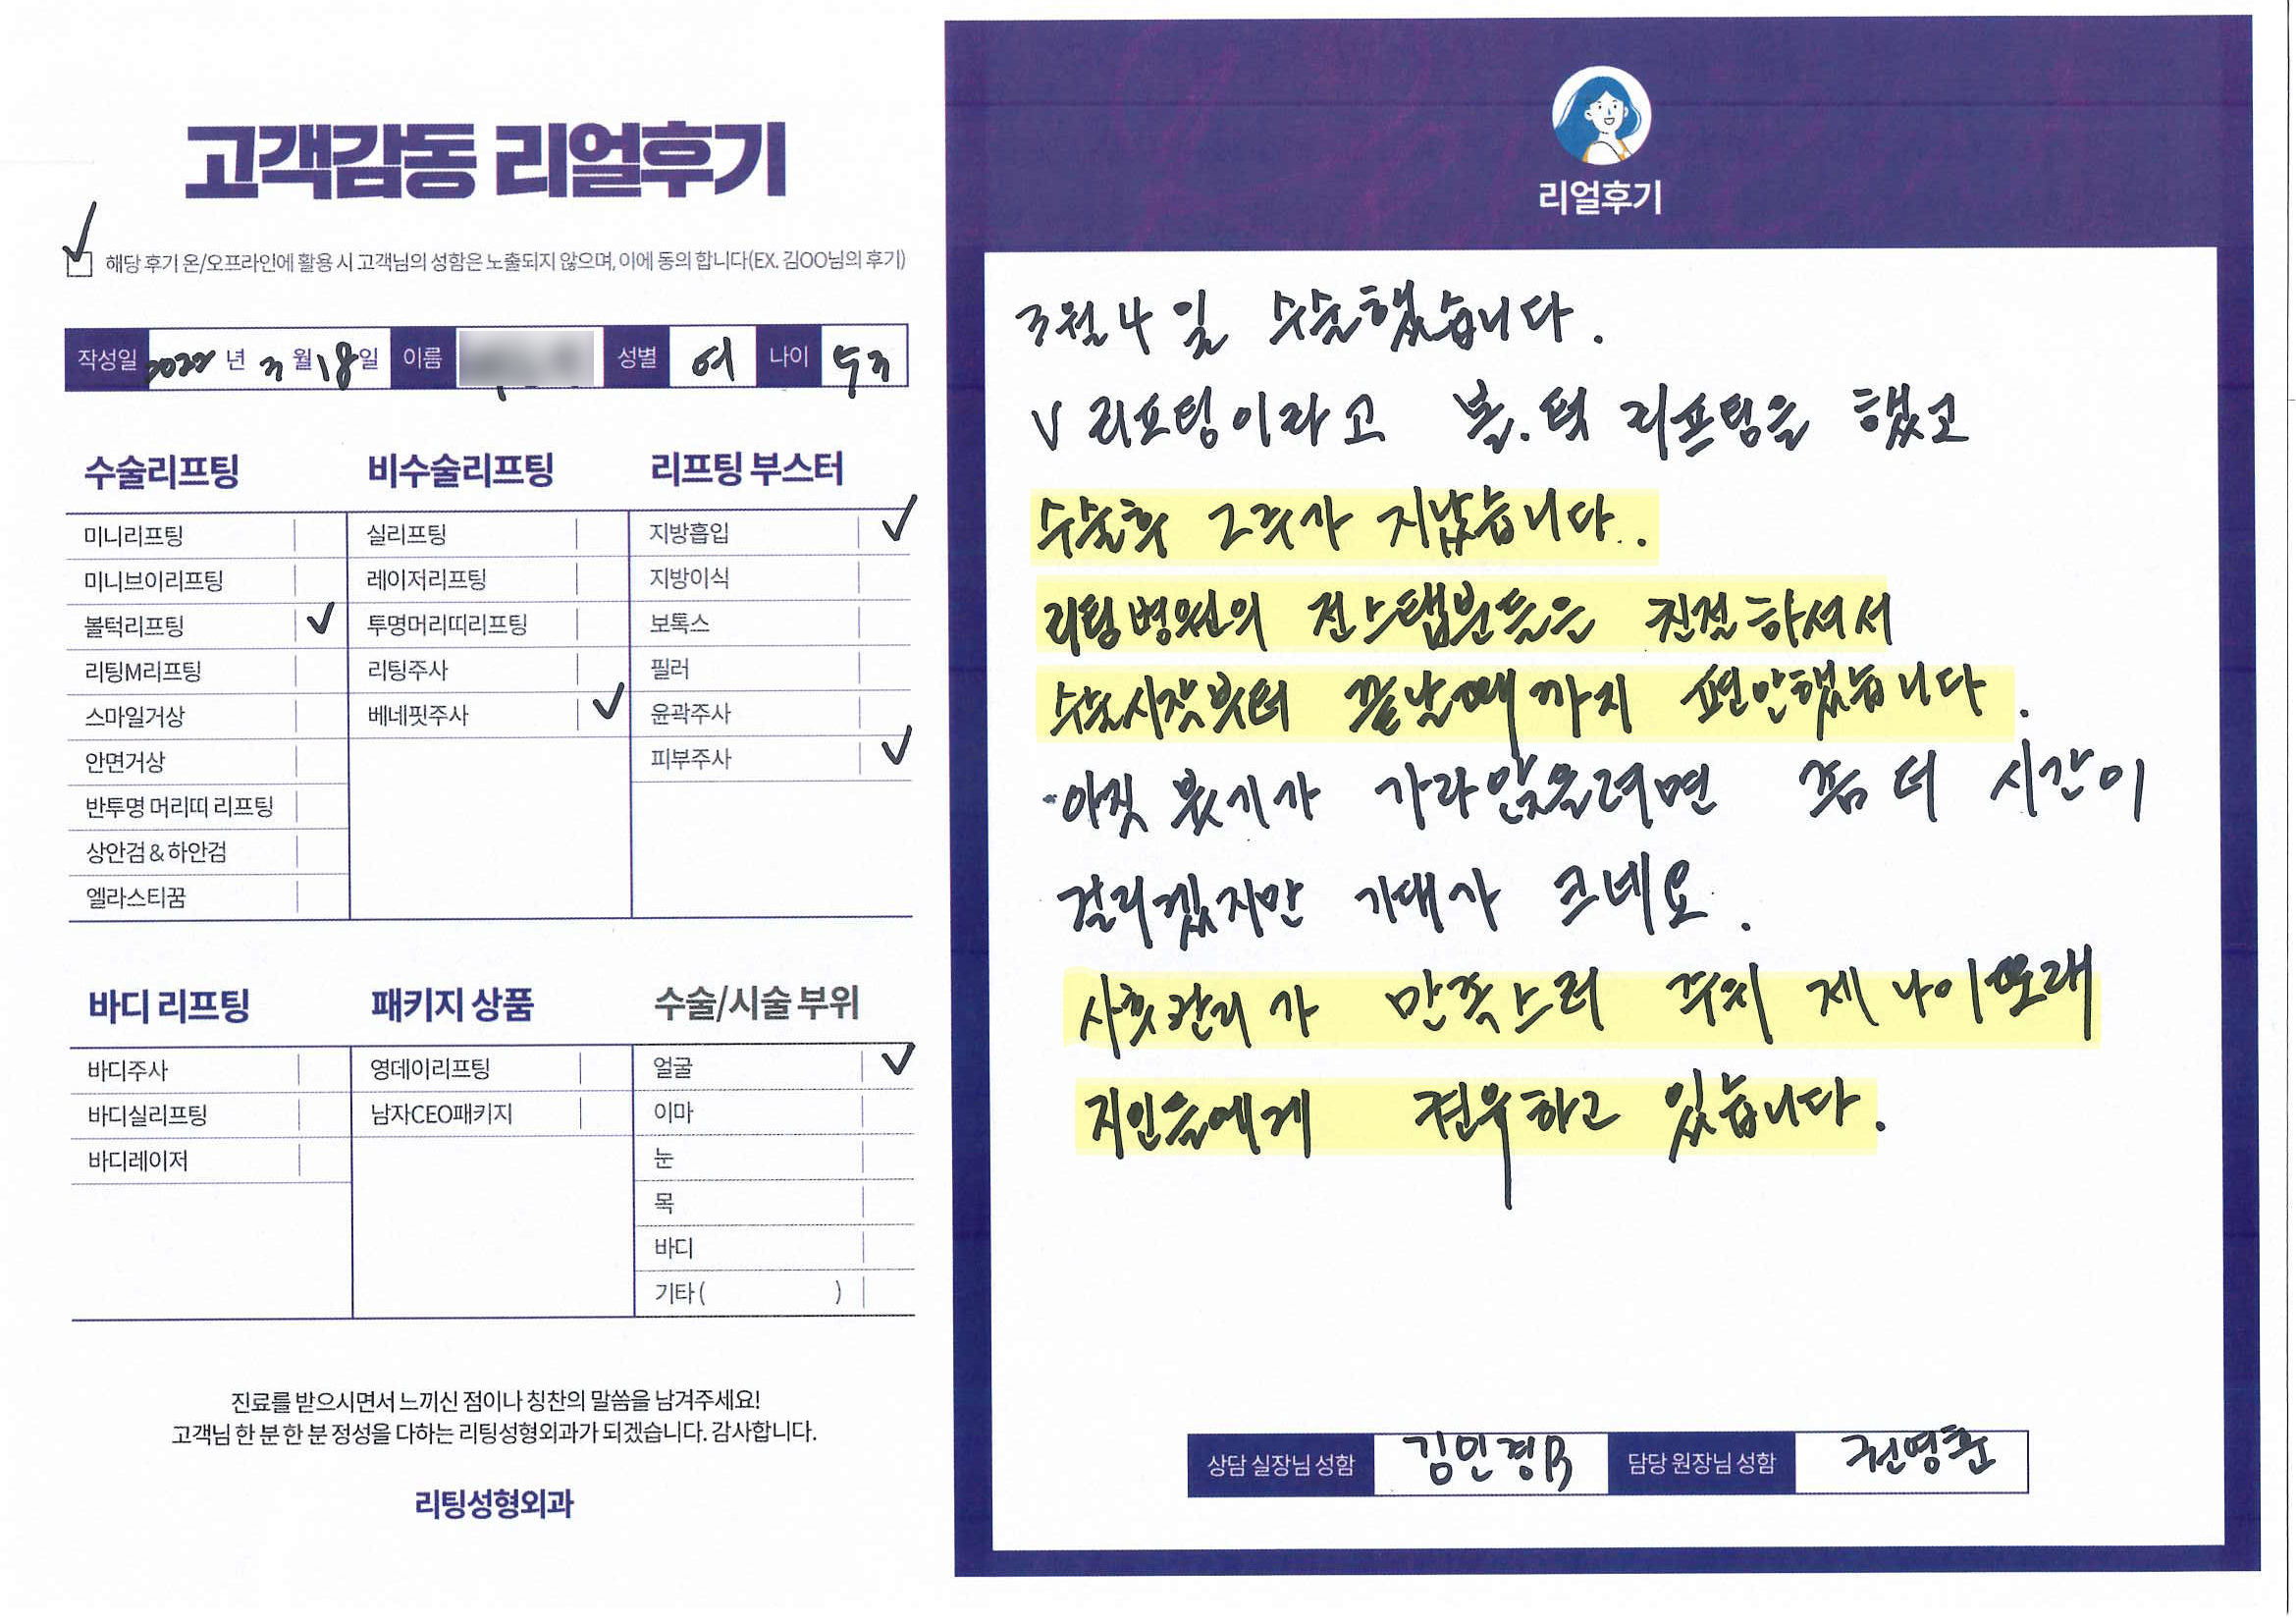 고객감동 리얼후기
해당 후기 온/오프라인에 활용 시 고객님의 성함은 노출되지 않으며, 이에 동의 합니다(EX. 김OO님의 후기)
작성일 2022 년 3 월 18 일 이름 성별 여 나이 53
수술리프팅
미니리프팅
미니브이리프팅
볼턱리프팅
리팅M리프팅
스마일거상
안면거상
반투명 머리띠 리프팅
상안검 & 하안검
엘라스티꿈
비수술리프팅
실리프팅
레이저리프팅
투명머리띠리프팅
리팅주사
베네핏주사
리프팅 부스터
지방흡입
지방이식
보톡스
필러
윤곽주사
피부주사
바디 리프팅
바디주사
바디실리프팅
바디레이저
패키지 상품
영데이리프팅
남자CEO패키지
수술/시술 부위
얼굴
이마
눈
목
바디
기타 ( )
진료를 받으시면서 느끼신 점이나 칭찬의 말씀을 남겨주세요!
고객님 한 분 한 분 정성을 다하는 리팅성형외과가 되겠습니다. 감사합니다.
리팅성형외과
리얼후기
3월 4일 수술했습니다.
V 리프팅이라고 볼.턱 리프팅을 했고
수술후 2주가 지났습니다..
리팅병원의 전스탭분들은 친절하셔서
수술시작부터 끝날때까지 편안했습니다.
아직 붓기가 가라앉을려면 좀 더 시간이
걸리겠지만 기대가 크네요.
사후관리가 만족스러 주위 제 나이또래
지인들에게 권유하고 있습니다.
상담 실장님 성함 김민경 담당 원장님 성함